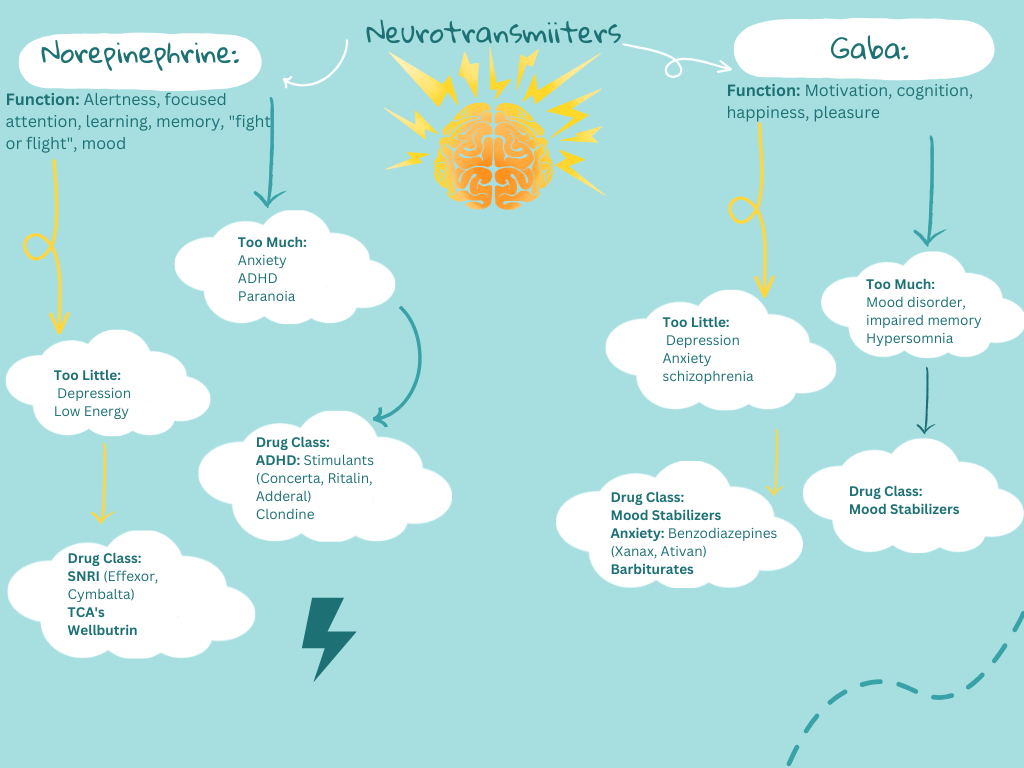 Neurotransmiiters
Norepinephrine:
Function: Alertness, focused
attention, learning, memory, "fight
or flight", mood
Too Much:
Anxiety
ADHD
Paranoia
Too Little:
Depression
Low Energy
Drug Class:
ADHD: Stimulants
(Concerta, Ritalin,
Adderal)
Clondine
Drug Class:
SNRI (Effexor,
Cymbalta)
TCA's
Wellbutrin
Gaba:
Function: Motivation, cognition,
happiness, pleasure
Too Much:
Mood disorder,
impaired memory
Hypersomnia
Too Little:
Depression
Anxiety
schizophrenia
Drug Class:
Mood Stabilizers
Anxiety: Benzodiazepines
(Xanax, Ativan)
Barbiturates
Drug Class:
Mood Stabilizers